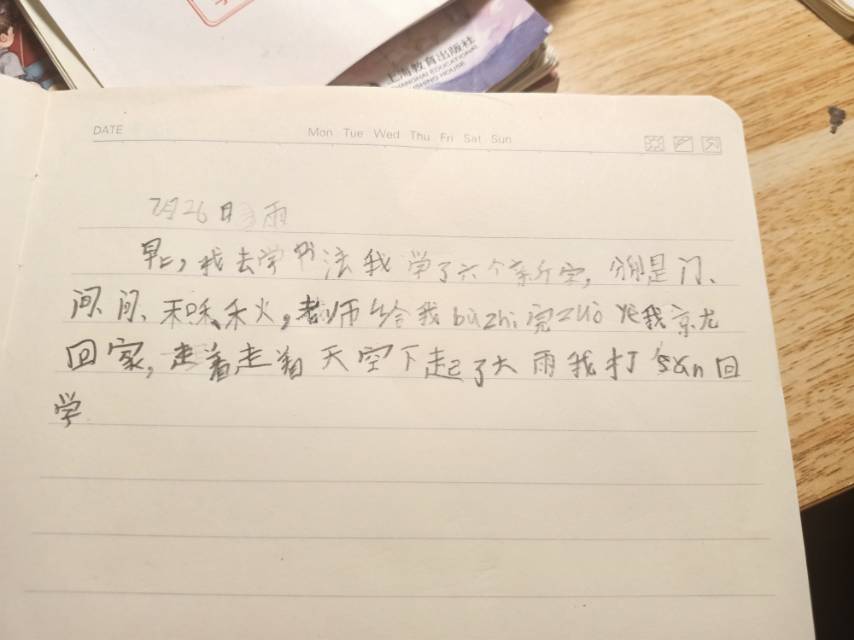 上海教育出版社
SHANGHAI EDUCATIONAL
PUBLISHING HOUSE
DATE Mon Tue Wed Thu Fri Sat Sun
7月26日 雨
早上，我去学书法我学了六个新字，分别是门、
间、问、禾和、秋，老师给我bùzhì完zuò yè我京尤
回家，走着走着天空下起了大雨我打sǎn回
学